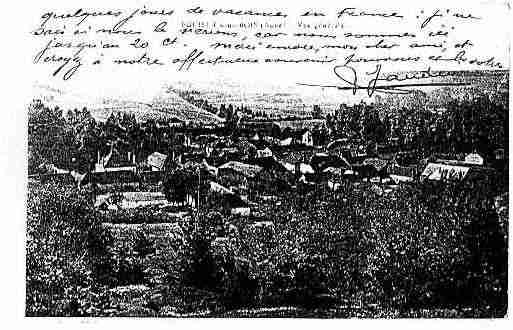 quelques jours de vacance en France : je ne
sais si nous le verrons, car nous sommes ici
Vue générale
jusqu'au 20 ct. Merci encore, mon cher ami, et
croyez à notre affectueux souvenir pour vous et la vôtre